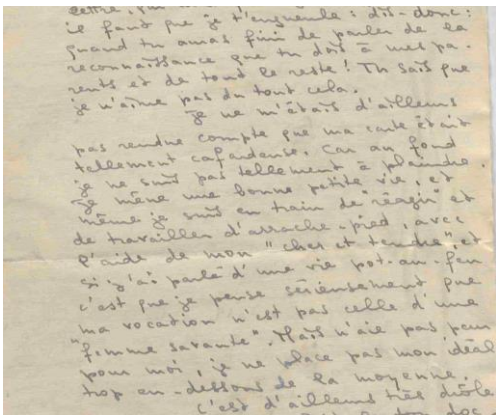 lettre,
il faut que je t'engueule : dis-donc :
quand tu auras fini de parler de la
reconnaissance que tu dois à mes pa-
rents et de tout le reste ! Tu sais que
je n'aime pas du tout cela.
Je ne m'étais d'ailleurs
pas rendue compte que ma carte était
tellement cafardeuse. Car au fond
je ne suis pas tellement à plaindre.
Je mène une bonne petite vie, et
même je suis en train de "réagir" et
de travailler d'arrache-pied, avec
l'aide de mon "cher et tendre", et
si j'ai parlé d'une vie pot-au-feu
c'est que je pense sérieusement que
ma vocation n'est pas celle d'une
"femme savante". Mais n'aie pas peur
pour moi, je ne place pas mon idéal
trop en-dessous de la moyenne.
C'est d'ailleurs très drôle